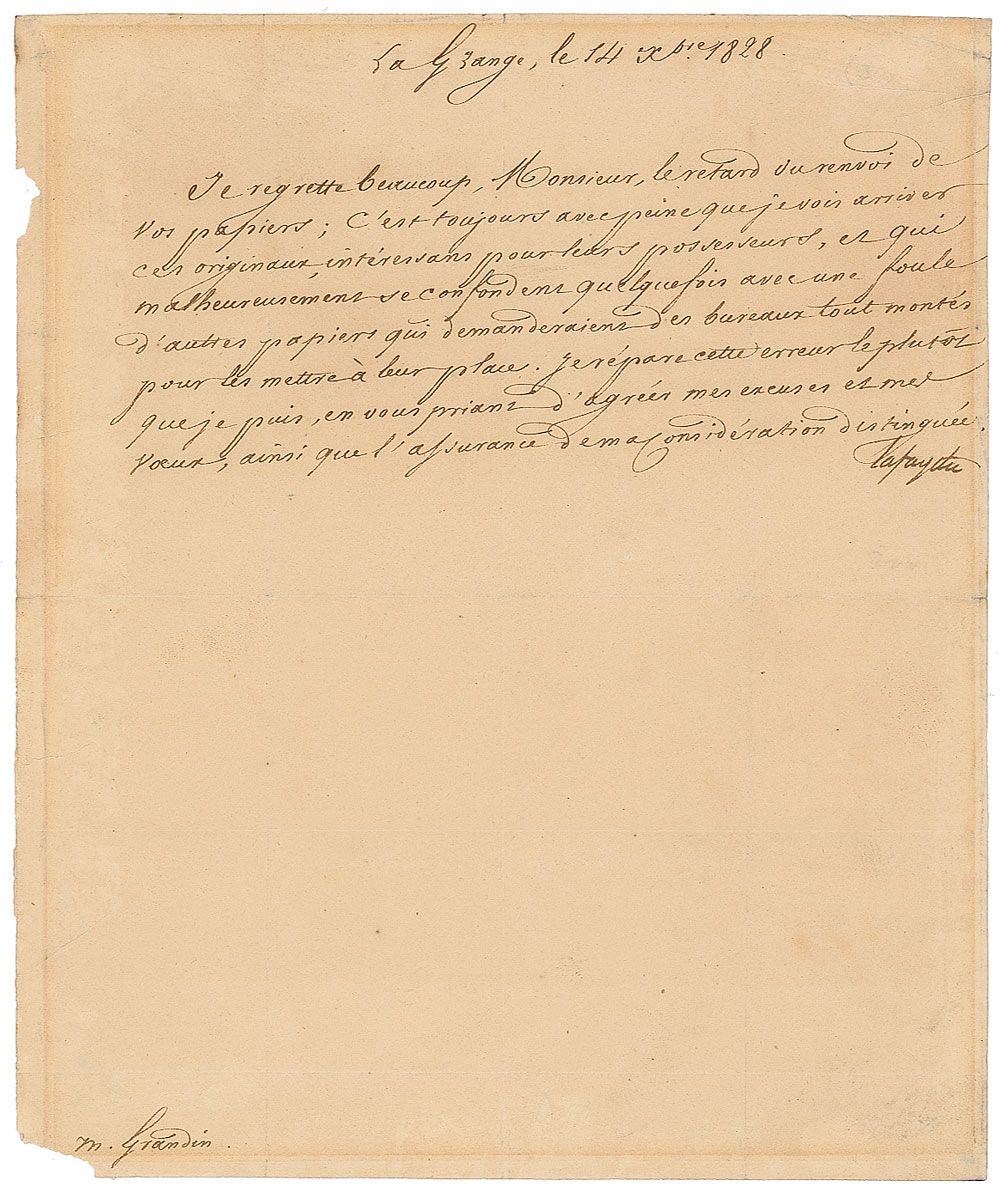 La Grange, le 14 Xbre 1828.
Je regrette beaucoup, Monsieur, le retard du renvoi de
vos papiers; c'est toujours avec peine que je vois arriver
ces originaux intéressans pour leurs possesseurs, et qui
malheureusement se confondent quelquefois avec une foule
d'autres papiers qui demanderaient des bureaux tout montés
pour les mettre à leur place. Je répare cette erreur le plutôt
que je puis, en vous priant d'agréer mes excuses et mes
vœux, ainsi que l'assurance de ma considération distinguée.
Lafayette
m. Grandin.